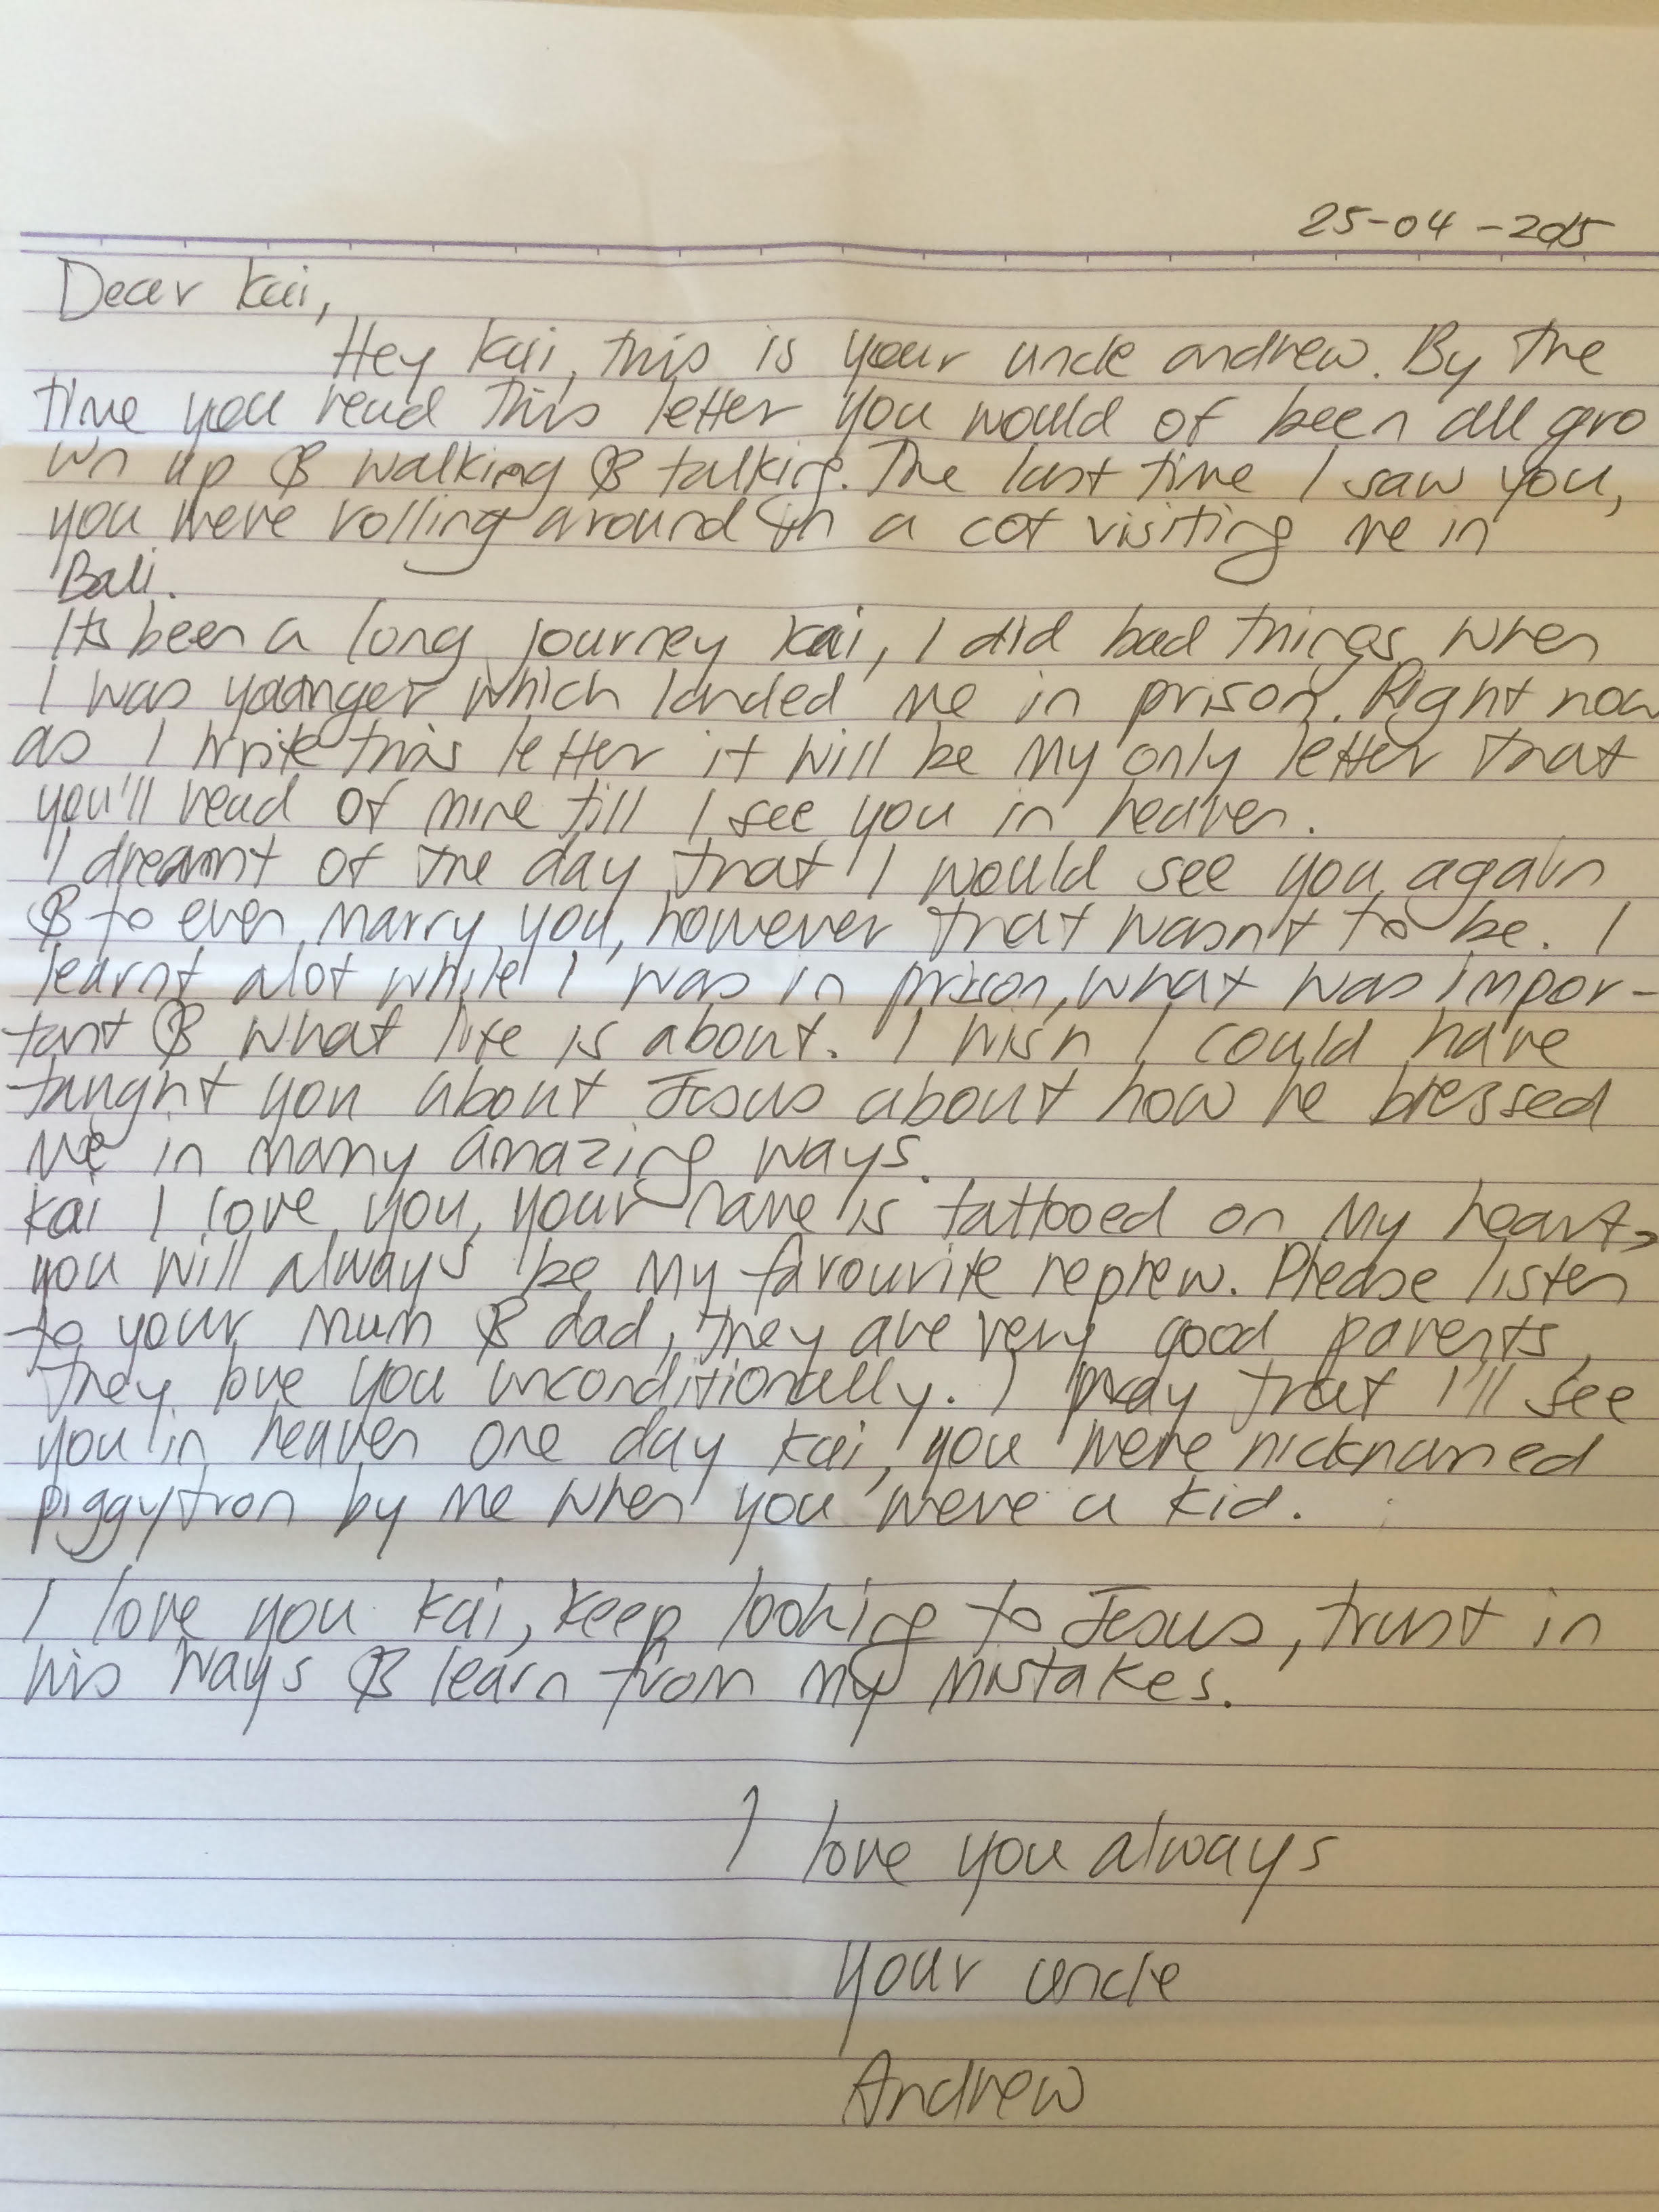 25-04-2015
Dear Kai,
Hey Kai, this is your uncle andrew. By the
time you read this letter you would of been all gro
wn up & walking & talking. The last time I saw you,
you were rolling around in a cot visiting me in
Bali.
Its been a long journey Kai, I did bad things when
I was younger which landed me in prison. Right now
as I write this letter it will be my only letter that
you'll read of mine till I see you in heaven.
I dreamt of the day that I would see you again
& to even marry you, however that wasn't to be. I
learnt alot while I was in prison, what was impor-
tant & what life is about. I wish I could have
taught you about Jesus about how he blessed
me in many amazing ways.
Kai I love you, your name is tattooed on my heart,
you will always be my favourite nephew. Please listen
to your mum & dad, they are very good parents,
they love you unconditionally. I pray that I'll see
you in heaven one day Kai, you were nicknamed
piggytron by me when you were a kid.
I love you Kai, keep looking to Jesus, trust in
his ways & learn from my mistakes.
I love you always
your uncle
Andrew